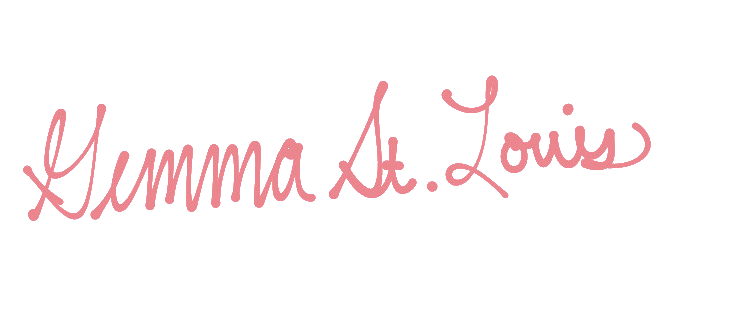 Gemma St. Louis